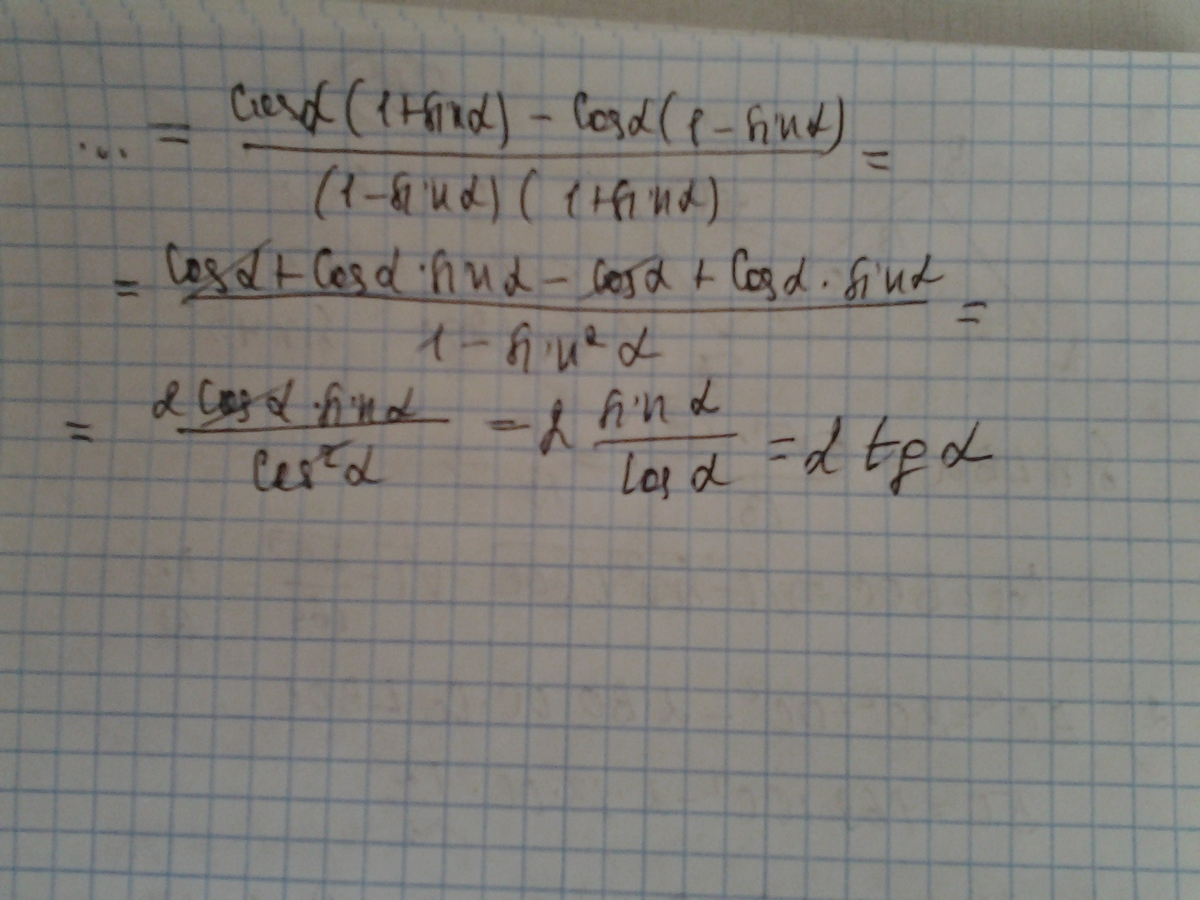 ... = (cosα(1+sinα) - cosα(1-sinα)) / ((1-sinα)(1+sinα)) =
= (cosα + cosα·sinα - cosα + cosα·sinα) / (1 - sin²α) =
= (2cosα·sinα) / (cos²α) = 2 (sinα / cosα) = 2 tgα